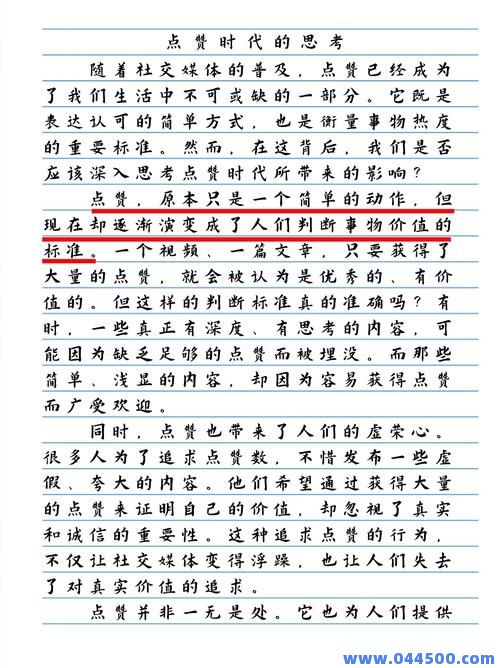 点赞时代的思考
随着社交媒体的普及，点赞已经成为
了我们生活中不可或缺的一部分。它既是
表达认可的简单方式，也是衡量事物热度
的重要标准。然而，在这背后，我们是否
应该深入思考点赞时代所带来的影响？
点赞，原本只是一个简单的动作，但
现在却逐渐演变成了人们判断事物价值的
标准。一个视频、一篇文章，只要获得了
大量的点赞，就会被认为是优秀的、有价
值的。但这样的判断标准真的准确吗？有
时，一些真正有深度、有思考的内容，可
能因为缺乏足够的点赞而被埋没。而那些
简单、浅显的内容，却因为容易获得点赞
而广受欢迎。
同时，点赞也带来了人们的虚荣心。
很多人为了追求点赞数，不惜发布一些虚
假、夸大的内容。他们希望通过获得大量
的点赞来证明自己的价值，却忽视了真实
和诚信的重要性。这种追求点赞的行为，
不仅让社交媒体变得浮躁，也让人们失去
了对真实价值的追求。
点赞并非一无是处。它也为人们提供
www.044500.com